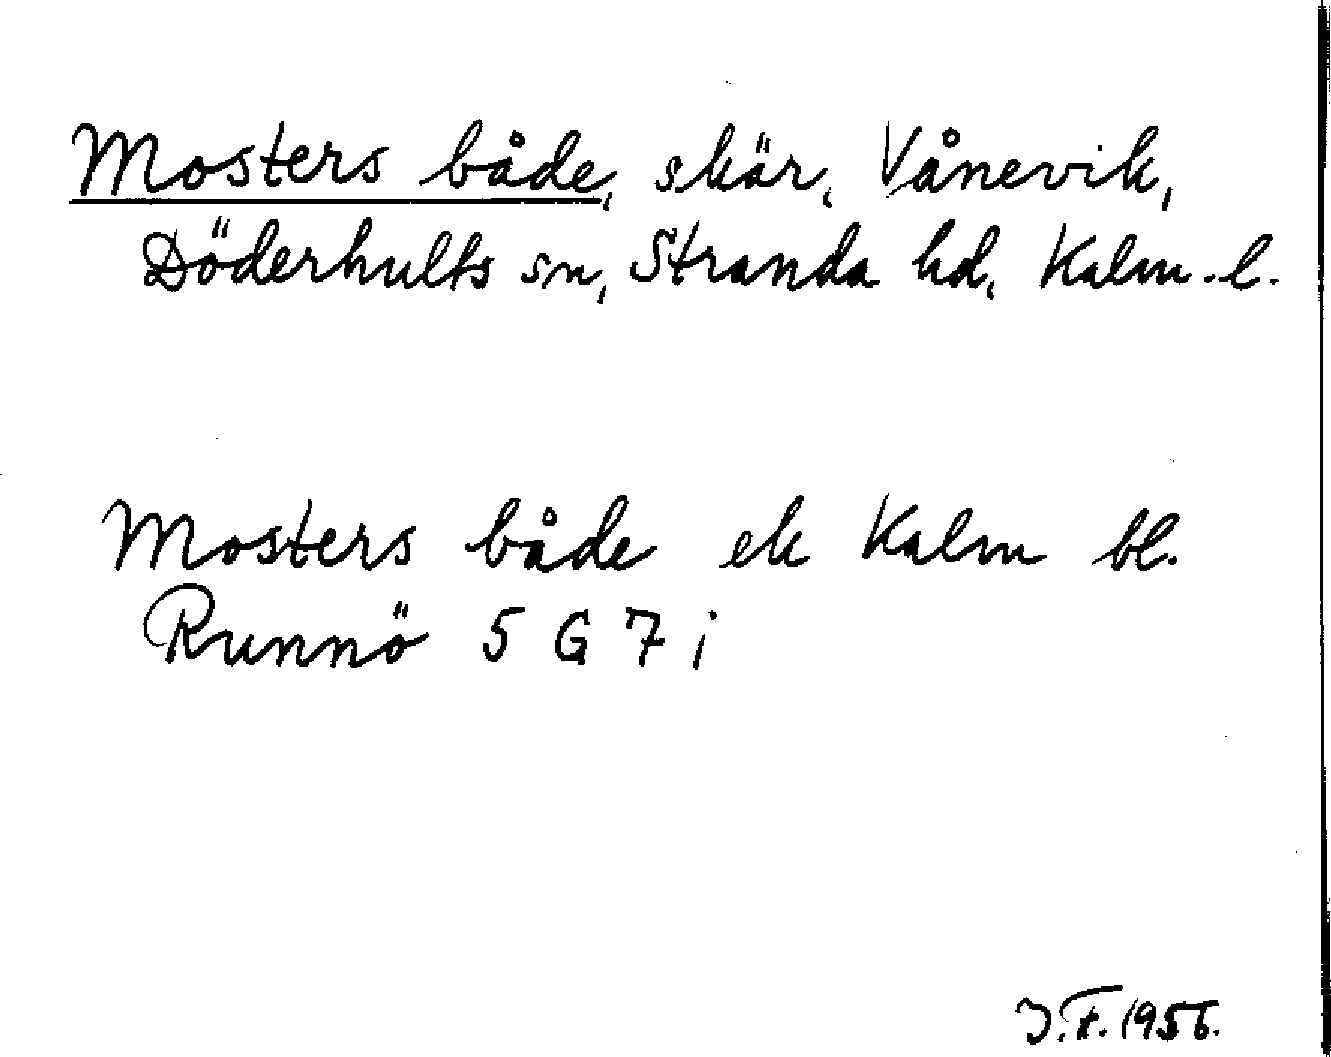 Mosters både, skär, Vånevik,
Döderhults sn, Stranda hd, Kalm. l.
Mosters både ek Kalm bl.
Runnö 5 G 7 i
J.F. 1956.